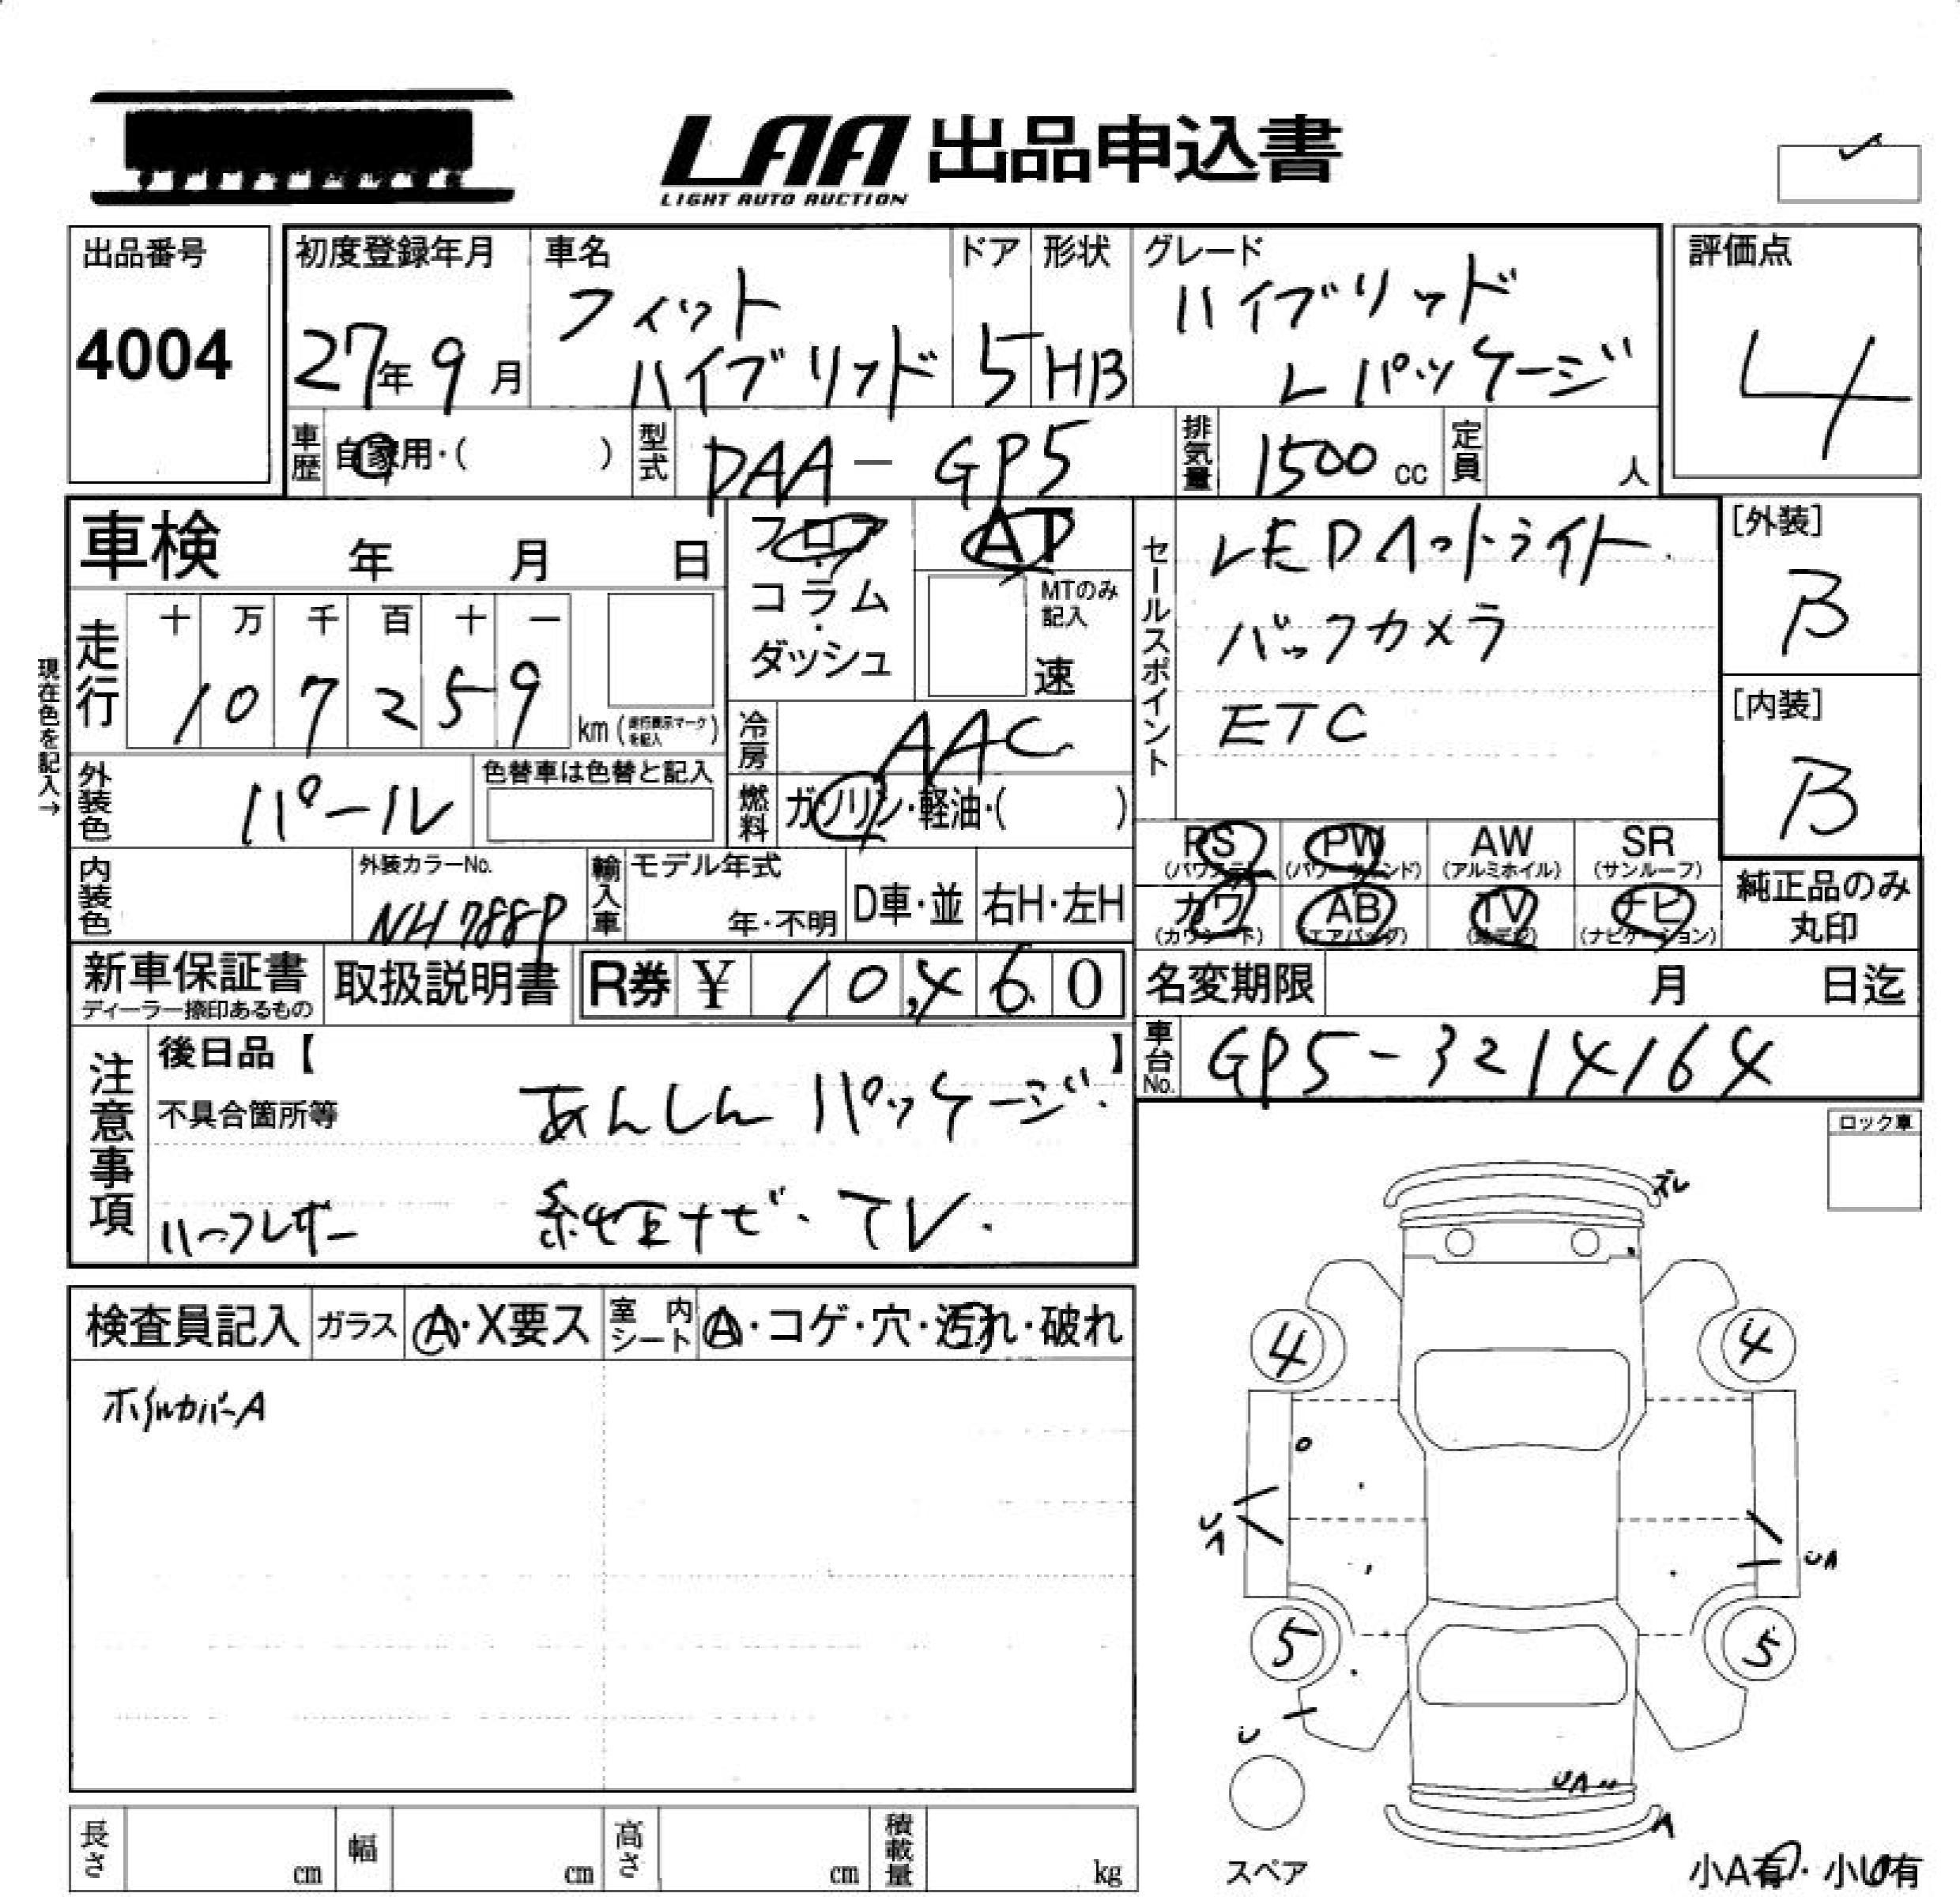 LAA 出品申込書
LIGHT AUTO AUCTION
出品番号
4004
初度登録年月
27年9月
車名
フィット
ハイブリッド
ドア
5
形状
HB
グレード
ハイブリッド
Lパッケージ
評価点
4
車歴
自家用・( )
型式
DAA-GP5
排気量
1500 cc
定員
人
車検 年 月 日
フロア
・
コラム
・
ダッシュ
AT
MTのみ
記入
速
セールスポイント
LEDヘッドライト
バックカメラ
ETC
[外装]
B
[内装]
B
現在色を記入→
走行
十 万 千 百 十 一
1 0 7 2 5 9
km (走行表示マークを記入)
冷房
AAC
燃料
ガソリン・軽油・( )
外装色
パール
色替車は色替と記入
内装色
外装カラーNo.
NH788P
輸入車
モデル年式
年・不明
D車・並
右H・左H
PS
(パワステー)
PW
(パワーウィンド)
AW
(アルミホイル)
SR
(サンルーフ)
カワ
(カワシート)
AB
(エアバッグ)
TV
(地デジ)
ナビ
(ナビゲーション)
純正品のみ
丸印
新車保証書
ディーラー捺印あるもの
取扱説明書
R券 ¥ 10,460
名変期限 月 日迄
車台No.
GP5-3214164
注意事項
後日品【 】
不具合箇所等
あんしんパッケージ.
ハーフレザー 純正ナビ・TV.
ロック車
検査員記入
ガラス
A・X要ス
室内シート
A・コゲ・穴・汚れ・破れ
ホイルカバーA
ズレ
4 4
UA
UA
5 5
U
UA
A
スペア
小A有・小U有
長さ cm
幅 cm
高さ cm
積載量 kg